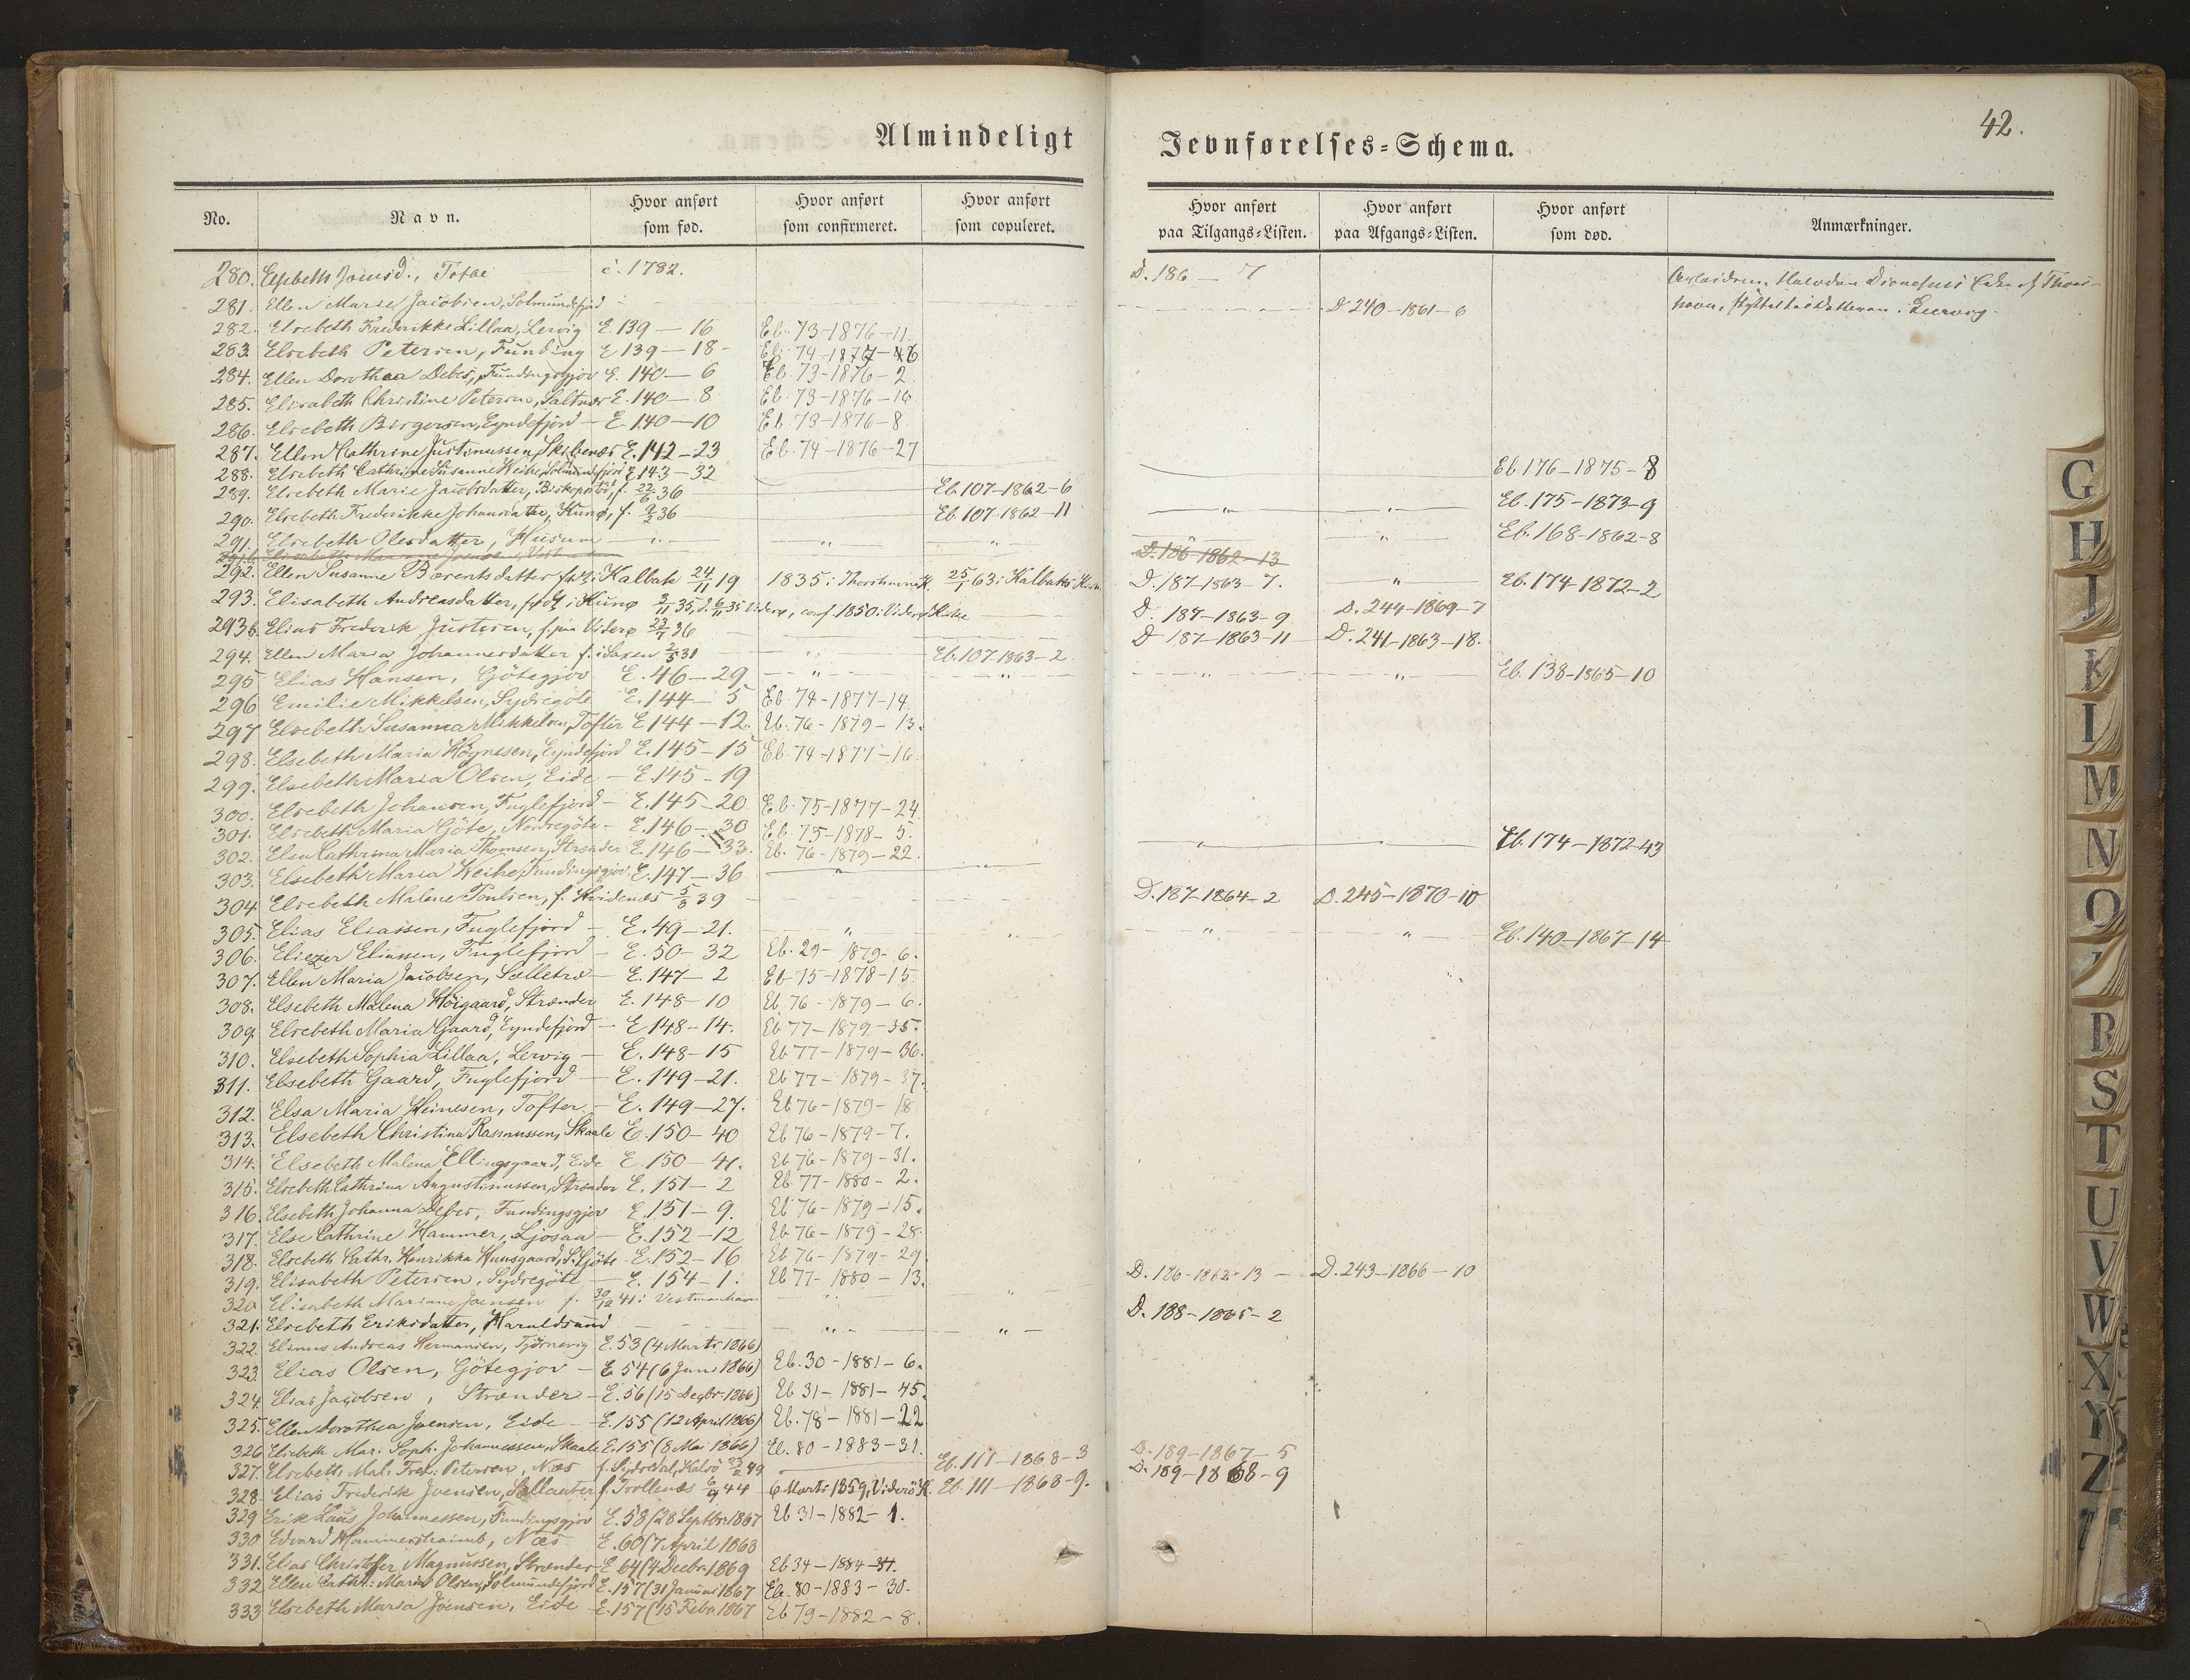 42.
Almindeligt Jevnførelses=Schema.
No. Navn. Hvor anført som fød. Hvor anført som confirmeret. Hvor anført som copuleret. Hvor anført paa Tilgangs=Listen. Hvor anført paa Afgangs=Listen. Hvor anført som død. Anmærkninger.
280. Elsebeth Joensd., c. 1782. D. 186 — 7
281. Ellen Marie Jacobsen, Solmundefjord D 240–1861–6
282. Elsebeth Frederikke Lillaa, Lervig E. 139 — 16 Eb. 73–1876–11.
283. Elsebeth Petersen, Funding E 139 — 18 Eb. 74–1877
284. Ellen Dorothea Debes, Fundingsgjov E. 140 — 6 Eb. 73–1876–2
285. Elisabeth Christine Petersen, Saltnæs E. 140 — 8 Eb. 73–1876–16
286. Elsebeth Birgersen, Eyndefjord — E. 140 — 10 Eb. 73–1876–8
287. Ellen Cathrine Justinussen, Skibenæs E. 142 — 23 Eb. 74–1876–27
288. Elsebeth Cathrine Susanne Weihe, Solmundefjord E 143 — 32 Eb 176–1875–8
289. Elsebeth Marie Jacobsdatter, Biskopstød, f. 22/6 36 Eb. 107–1862–6 Eb. 175–1873–9
290. Elsebeth Frederikke Johansdatter, Kunø, f. 9/2 36 Eb. 107–1862–11
291. Elsebeth Olesdatter, Husum Eb. 168–1862–8
D. 186–1862–13
292. Ellen Susanne Bærentsdatter født i Kalbak 24/11 19 1835 i Thorshavns K. 25/1 63 i Kalbaks Kirke D. 187–1863–7. Eb. 174–1872–2
293. Elisabeth Andreasdatter, født i Kunø 3/11 35, d. 6/11 35 Viderø, conf 1850 i Viderø Kirke D. 187–1863–9 D. 244–1869–7
293b. Elias Frederik Justesen, f. paa Viderø 23/7 36 D 187–1863–11 D. 241–1863–18.
294. Ellen Maria Johannesdatter f. i Saxen 2/5 31 Eb. 107 1863–2
295 Elias Hansen, Götegjov E. 46 — 29 Eb. 138–1865–10
296 Emilie Mikkelsen, Sydregöte E. 144 — 5 Eb. 74–1877–14.
297 Elsebeth Susanna Mikkelsen, Tofter E 144 — 12. Eb. 76–1879–13.
298. Elsebeth Maria Högnesen, Eyndefjord E. 145 — 15 Eb. 74–1877–16
299. Elsebeth Maria Olsen, Eide — E. 145 — 19
300. Elsebeth Johansen, Fuglefjord — E. 145 — 20 Eb. 75–1877–24.
301. Elsebeth Maria Göte, Nordregöte — E. 146 — 30 Eb. 75–1878–5.
302. Elsa Cathrina Maria Thomsen, Strænder E. 146 — 33. Eb. 76–1879–22. Eb. 174–1872–43
303. Elsebeth Maria Weihe, Fundingsgjov. E. 147 — 36
304 Elsebeth Malene Poulsen, f. Hvidenæs 5/8 39 D. 187–1864–2 D. 245–1870–10
305. Elias Eliassen, Fuglefjord — E. 49 — 21. Eb. 140–1867–14
306. Eliezer Eliassen, Fuglefjord E. 50 — 32 Eb. 29–1879–6.
307. Ellen Maria Jacobsen, Selletræ — E. 147 — 2 Eb 75–1878–15
308. Elsebeth Malena Höigaard, Strænder E. 148 — 10 Eb. 76–1879–6.
309. Elsebeth Maria Gaard, Eyndefjord — E 148 — 14. Eb 77–1879–35.
310. Elsebeth Sophia Lillaa, Lervig — E. 148 — 15 Eb 77–1879–36.
311. Elsebeth Gaard, Fuglefjord — E. 149 — 21. Eb 77–1879–37.
312. Elsa Maria Heinesen, Tofter — E. 149 — 27. Eb 76–1879–18
313. Elsebeth Christina Rasmussen, Skaale E. 150 — 40 Eb 76–1879–7.
314. Elsebeth Malena Ellingsgaard, Eide E. 150 — 41. Eb 76–1879–31.
315. Elsebeth Cathrina Augustinussen, Strænder E. 151 — 2 Eb. 77–1880–2.
316. Elsebeth Johanna Debes, Fundingsgjov E. 151 — 9. Eb 76–1879–15.
317. Else Cathrine Hammer, Ljosaa — E. 152 — 12 Eb 76–1879–28
318. Elsebeth Cathr. Henrikka Huusgaard, S. Gjöte E. 152 — 16 Eb 76–1879–29
319. Elisabeth Petersen, Sydregöte — E. 154 — 1. Eb 77–1880–13.
320 Elisabeth Mariane Joensen f. 30/12 41 i Vestmanhavn D. 186–1862–13 — D. 243–1866–10
321. Elsebeth Eriksdatter, Haraldsund D. 188–1865–2
322. Elinus Andreas Hermansen, Tjörnevig E. 53 (4 Marts 1866)
323. Elias Olsen, Götegjov — E 54 (6 Juni 1866) Eb. 30–1881–6.
324 Elias Jacobsen, Strænder — E. 56 (15 Decbr. 1866) Eb 31–1881–45.
325. Ellen Dorothea Joensen, Eide — E. 155 (12 April 1866) Eb. 78–1881–22
326 Elsebeth Mar. Soph. Johannessen, Skaale E. 155 (8 Mai 1866) Eb. 80–1883–31.
327. Elsebeth Mal. Fred. Petersen, Næs f. Sydredal, Kalsö 23/2 49 Eb. 111–1868–3 D. 189–1867–5
328. Elias Frederik Joensen, f. Trollenæs 6/9 44 6 Marts 1859, Viderö K. Eb. 111–1868–9. D. 189–1868–9
329 Erik Laus Johannessen, Fundingsgjov E. 58 (28 Septbr. 1867 Eb 31–1882–1.
330 Edvard Hammershaimb, Næs E. 60 (7 April 1868
331. Elias Christoffer Magnussen, Strænder E 64 (4 Decbr. 1869 Eb 34–1884–31.
332 Ellen Cathr. Maria Olsen, Solmundefjord E. 157 (31 Januar 1867 Eb. 80–1883–30.
333 Elsebeth Maria Joensen, Eide E. 157 (15 Febr. 1867 Eb 79–1882–8.
G
H
J
K
L
M
N
O
R
S
T
U
V
W
X
Y
Z